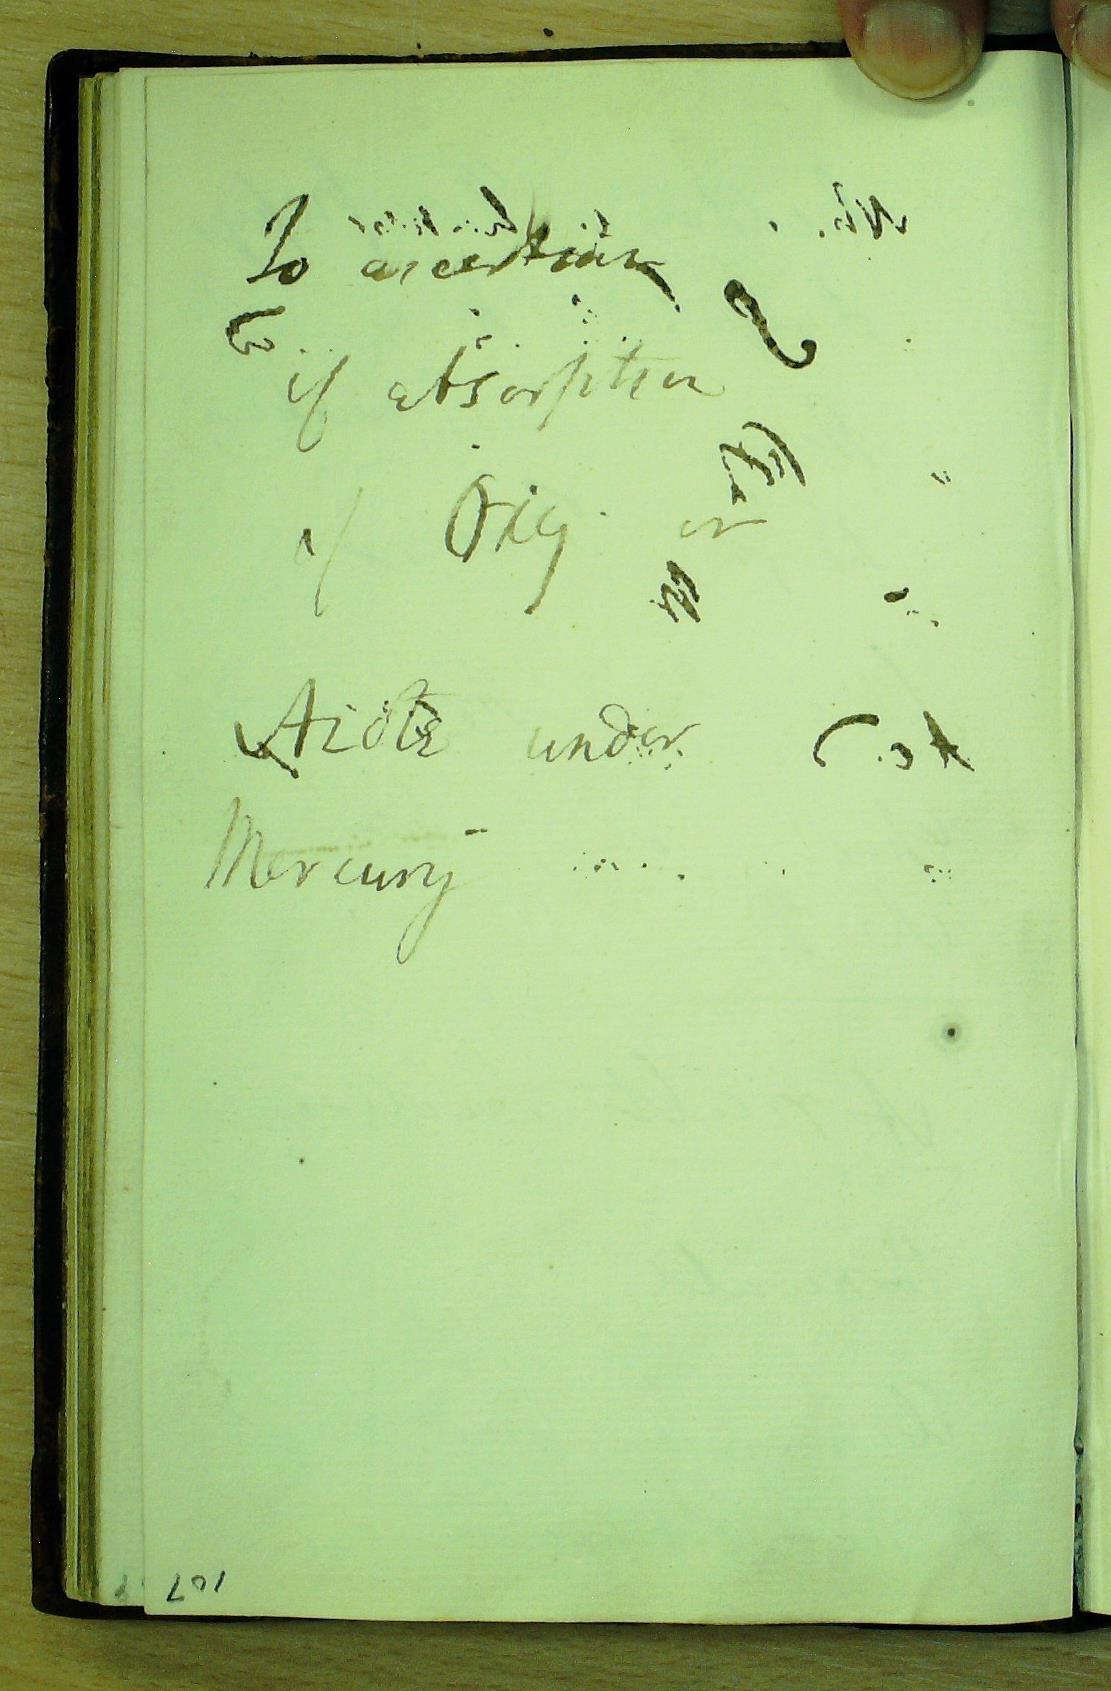 To ascertain
if absorption
of Oxy. or
Azote under
Mercury
107